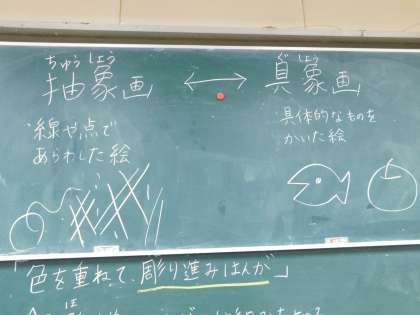 ちゅうしょう ぐしょう
抽象画 ⟷ 具象画
・線や点で
あらわした絵
・具体的なものを
かいた絵
色を重ねて、彫り進みはんが」
ほ